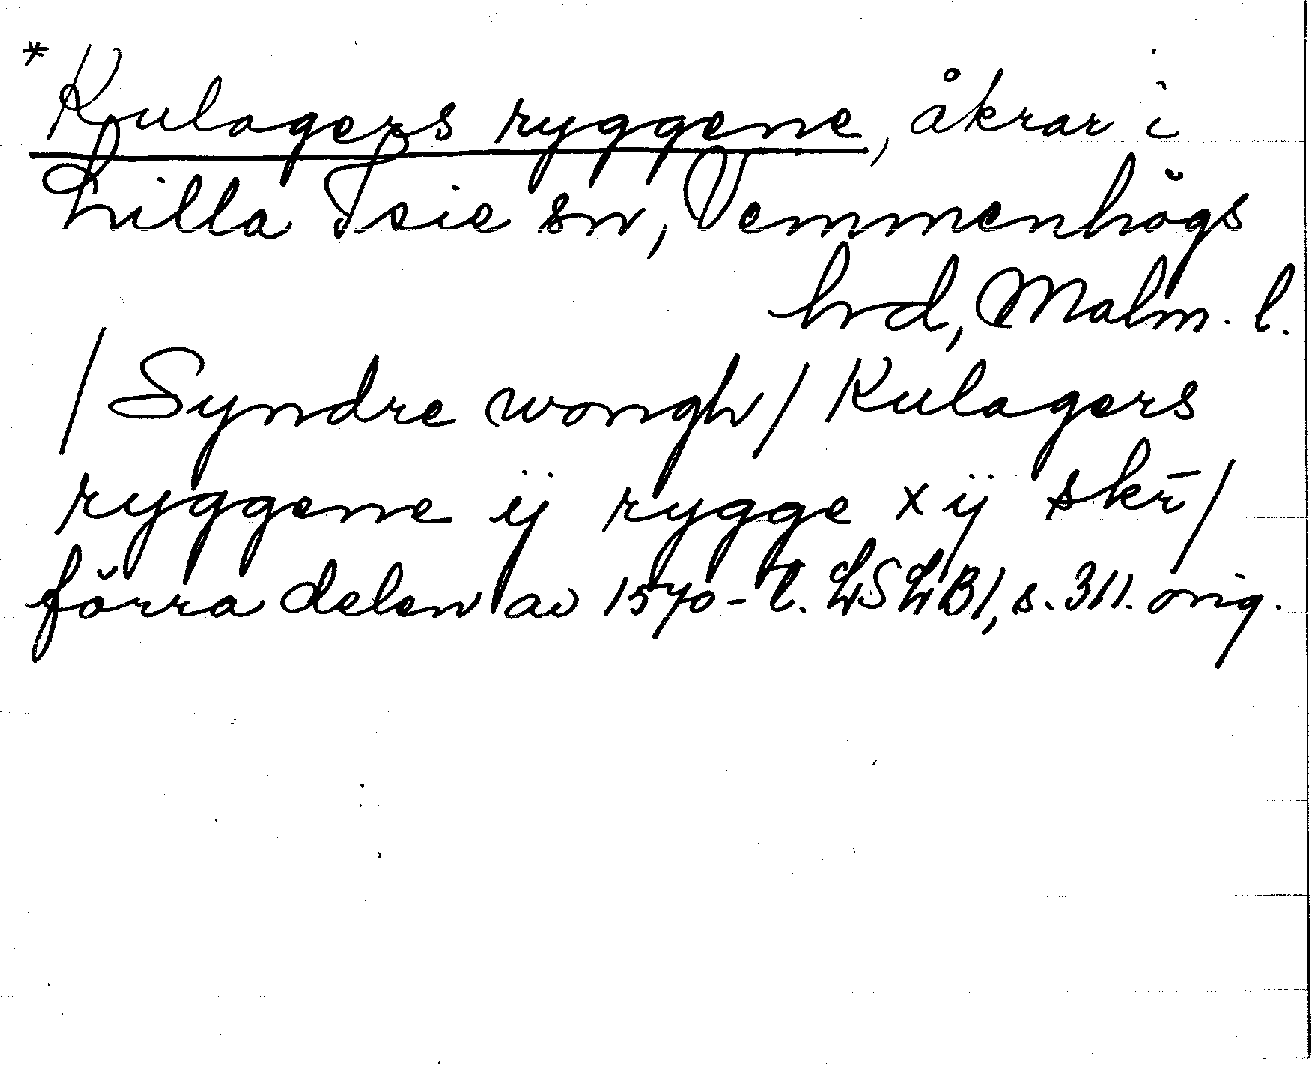 *Kulagers ryggene, åkrar i
Lilla Isie sn, Vemmenhögs
hrd, Malm. l.
/Syndre wongh/ Kulagers
ryggene ij rygge xij skr̄/
förra delen av 1570-t. LSLB1, s. 311. orig.